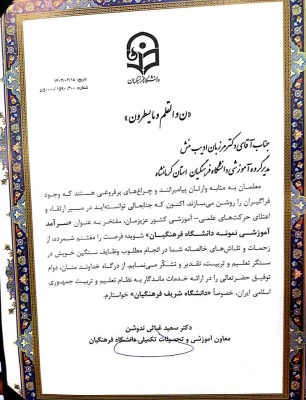 دانشگاه فرهنگیان
تاریخ: ۱۴۰۲/۰۲/۱۸
شماره:
«ن و القلم و ما یسطرون»
جناب آقای دکتر مرزبان ادیب منش
مدیر گروه آموزشی دانشگاه فرهنگیان استان کرمانشاه
معلمان به مثابه وارثان پیامبرانند و چراغ‌های پرفروغی هستند که وجود
فراگیران را روشن می‌سازند. اکنون که جنابعالی توانسته‌اید در مسیر ارتقاء و
اعتلای حرکت‌های علمی-آموزشی کشور عزیزمان، مفتخر به عنوان «سرآمد
آموزشی نمونه دانشگاه فرهنگیان» شوید؛ فرصت را مغتنم شمرده، از
زحمات و تلاش‌های خالصانه شما در انجام مطلوب وظایف سنگین خویش در
سنگر تعلیم و تربیت، تقدیر و تشکر می‌نمایم. از درگاه خداوند منان، دوام
توفیق حضرتعالی را در ارائه خدمات ماندگار به نظام تعلیم و تربیت جمهوری
اسلامی ایران، خصوصاً «دانشگاه شریف فرهنگیان» خواستارم.
دکتر سعید غیاثی ندوشن
معاون آموزشی و تحصیلات تکمیلی دانشگاه فرهنگیان